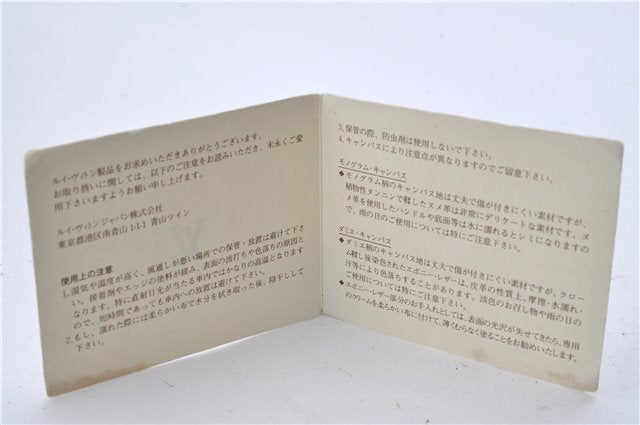 ルイ・ヴィトン製品をお求めいただきありがとうございます。
お取り扱いに関しては、以下のご注意をお読みいただき、末永くご愛
用下さいますようお願い申し上げます。
ルイ・ヴィトンジャパン株式会社
東京都港区南青山1-1-1 青山ツイン
使用上の注意
1.湿気や温度が高く、風通しが悪い場所での保管・放置は避けて下さ
い。接着剤やエッジの塗料が緩み、表面の波打ちや色落ちの原因と
なります。特に直射日光が当たる車内ではかなりの高温となります
ので、短時間であっても車内への放置は避けて下さい。
2.もし、濡れた際には柔らかい布で水分を拭き取った後、陰干しして
下さい。
3.保管の際、防虫剤は使用しないで下さい。
4.キャンバスにより注意点が異なりますのでご留意下さい。
モノグラム・キャンバス
◆モノグラム柄のキャンバス地は丈夫で傷が付きにくい素材ですが、
植物性タンニンで鞣したヌメ革は非常にデリケートな素材です。ヌ
メ革を使用したハンドルや底面等は水に濡れるとシミになりますの
で、雨の日のご使用については特にご注意下さい。
ダミエ・キャンバス
◆ダミエ柄のキャンバス地は丈夫で傷が付きにくい素材ですが、クロー
ム鞣し後染色されたエボニー・レザーは、皮革の性質上、摩擦・水濡れ・
汗等により色落ちすることがあります。淡色のお召し物や雨の日の
ご使用については特にご注意下さい。
◆エボニー・レザー部分のお手入れとしては、表面の光沢が失せてきたら、専用
のクリームを柔らかい布に付けて、薄くむらなく塗ることをお勧めいたします。